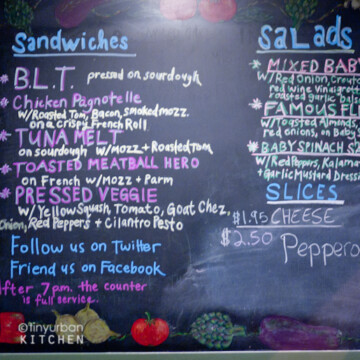 Sandwiches
* B.L.T. pressed on sourdough
* Chicken Pagnotelle
w/Roasted Tom, Bacon, smoked mozz.
on a crispy French Roll
* TUNA MELT
on sourdough w/Mozz + Roasted tom
* TOASTED MEATBALL HERO
on French w/Mozz + Parm
* PRESSED VEGGIE
w/Yellow Squash, Tomato, Goat Chez,
Onion, Red Peppers + Cilantro Pesto
Follow us on Twitter
Friend us on Facebook
After 7pm. the counter
is full service.
SALADS
* MIXED BABY
w/Red Onion,
red wine Vinaigrett
roasted garlic
* FAMOUS
w/Toasted Almonds,
red onions, on Baby
* BABY SPINACH S
w/Red Peppers, Kalama
+ Garlic Mustard Dress
SLICES
$1.95 CHEESE
$2.50 Peppero
©Tinyurban
KITCHEN